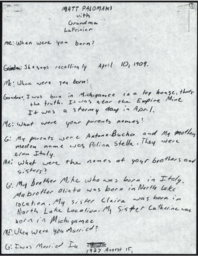 MATT PALOMAKI
with
Grandma
Me: When were you born?
She says
April 10, 1909.
Me: When were you born?
Grandma: I was born in Michigamme in a log house, thats
the truth. It was near the Empire Mine.
It was a stormy day in April.
Me: What were your parents names?
G: My parents were and my mothers
name was Stella. They were
from Italy.
Me: What were the names of your brothers and
sisters?
G: My Brother Mike who was born in Italy.
My brother was born in North Lake
location. My sister Clara was born in
North Lake Location. My Sister Catherine was
born in Michigamme.
Me: When were you Married?
G: I was Married In
1927 August 15,